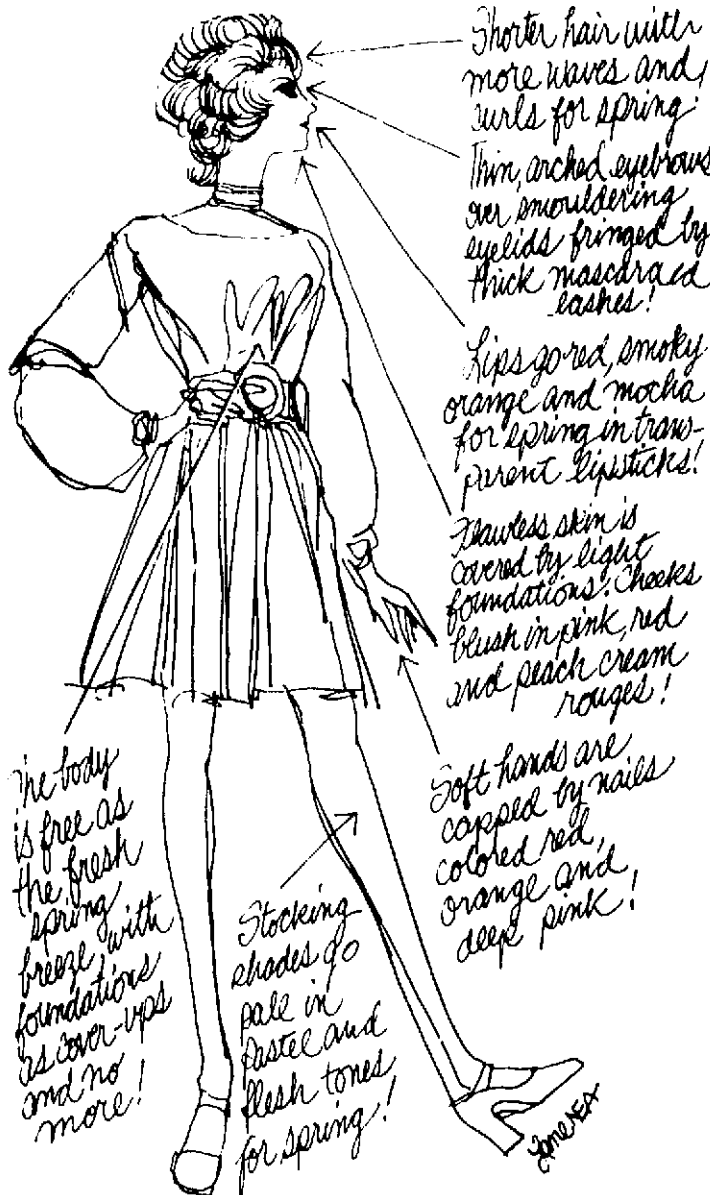 Shorter hair with
more waves and
curls for spring!
Thin, arched eyebrows
over smouldering
eyelids fringed by
thick mascaraed
lashes!
Lips go red, smoky
orange and mocha
for spring in trans-
parent lipsticks!
Flawless skin is
covered by light
foundations! Cheeks
blush in pink, red
and peach cream
rouges!
Soft hands are
capped by nails
colored red,
orange and
deep pink!
The body
is free as
the fresh
spring
breeze, with
foundations
as cover-ups
and no
more!
Stocking
shades go
pale in
pastel and
flesh tones
for spring!